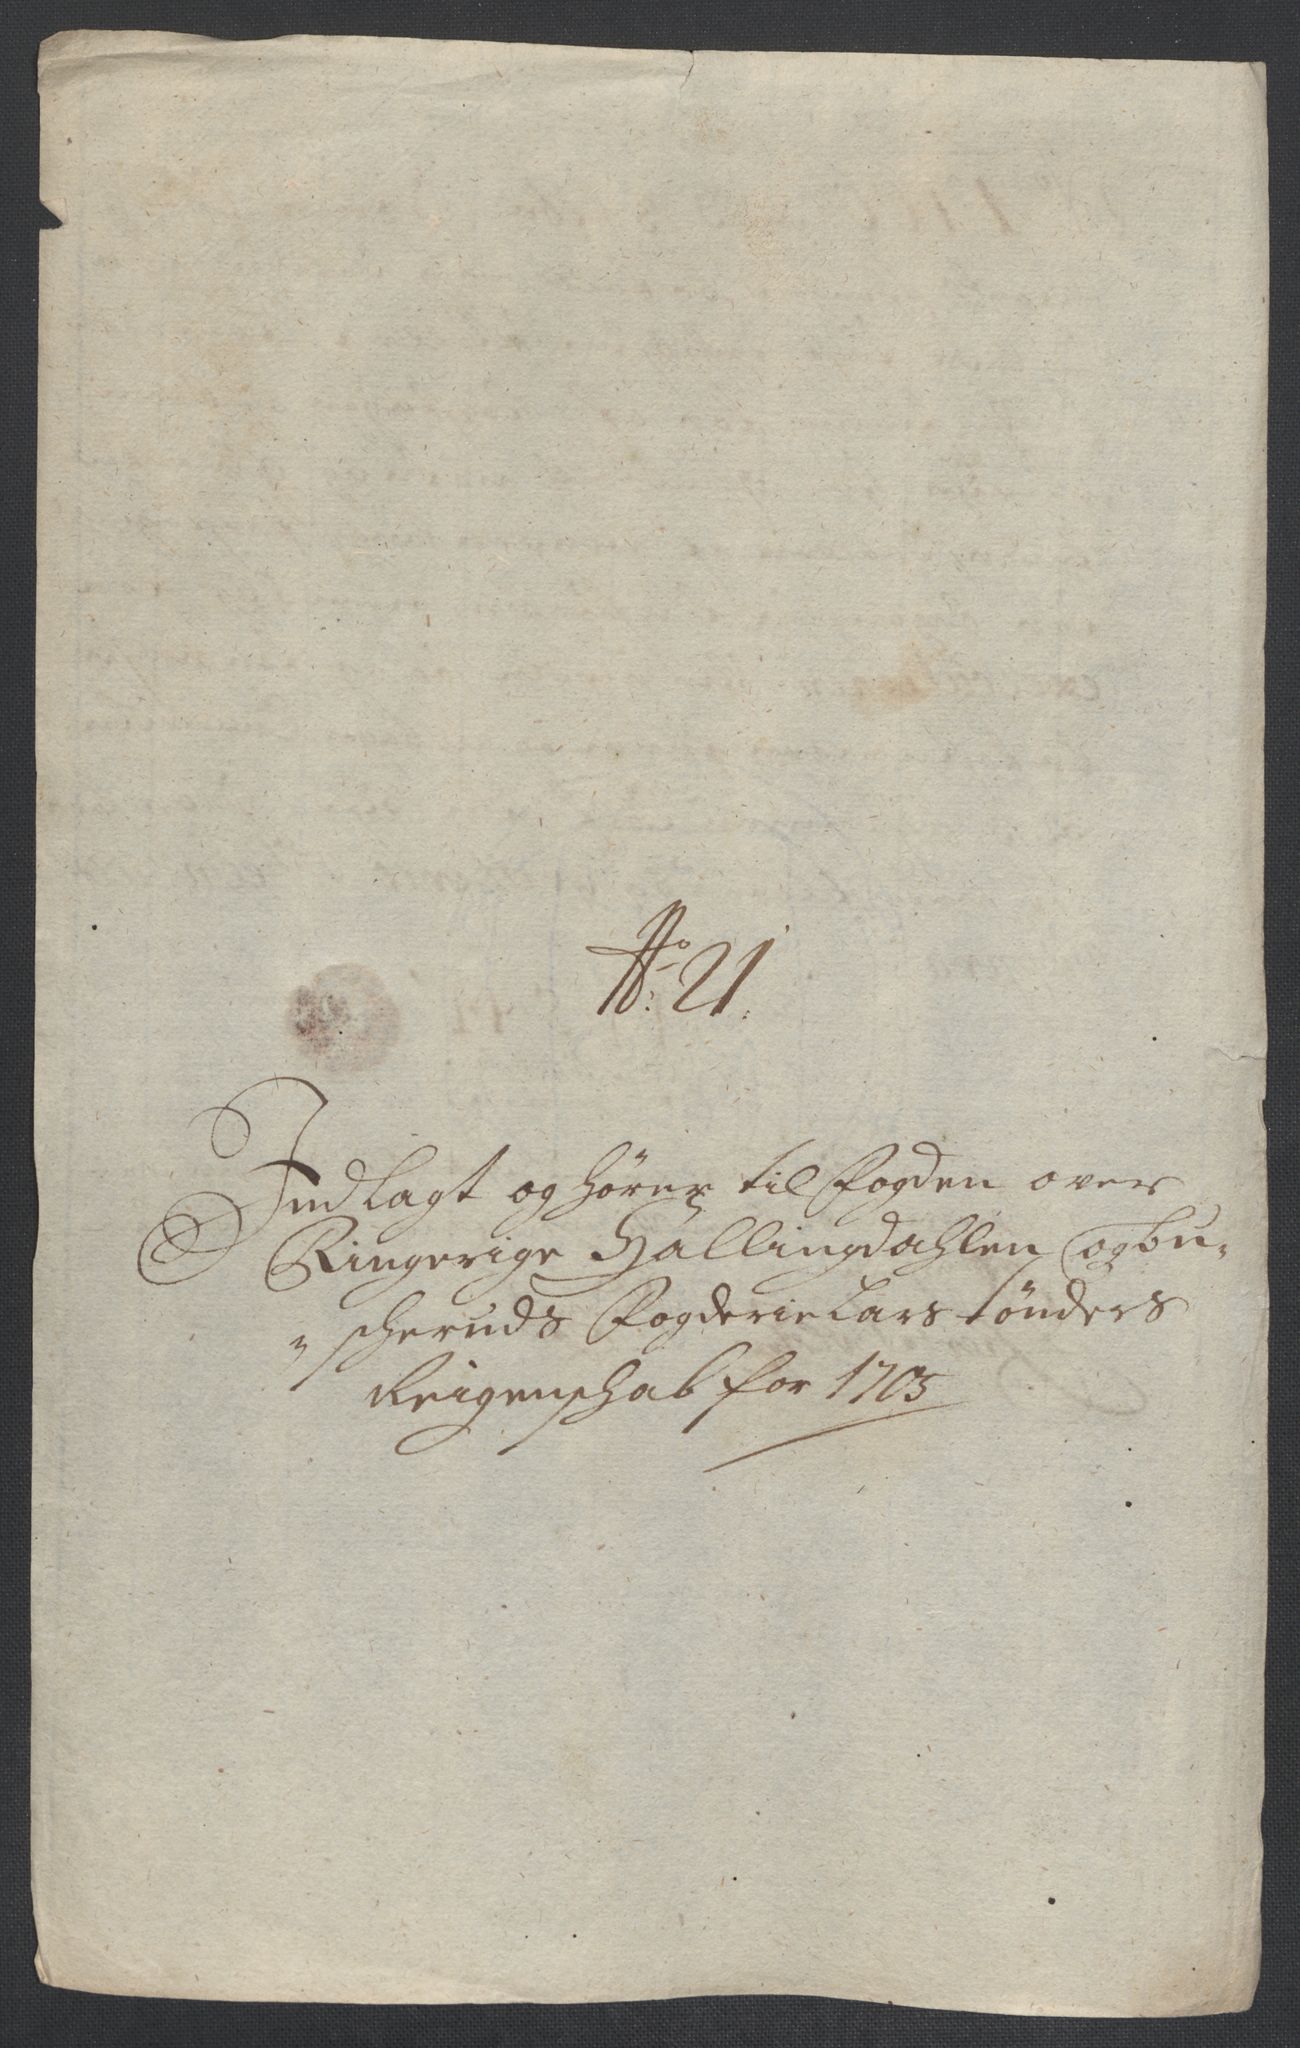 No: 21.
Indlagt og hører til Fogden over
Ringerige Hallingdahlen og bu-
scheruds Fogderie Lars tønders
Reigenschab for 1705